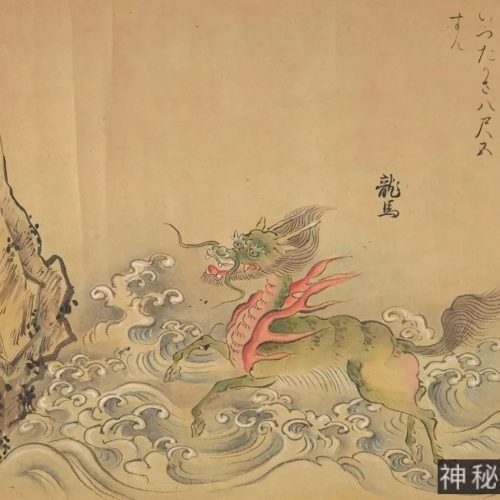 いつたかさ八尺五
すん
龍馬
神秘